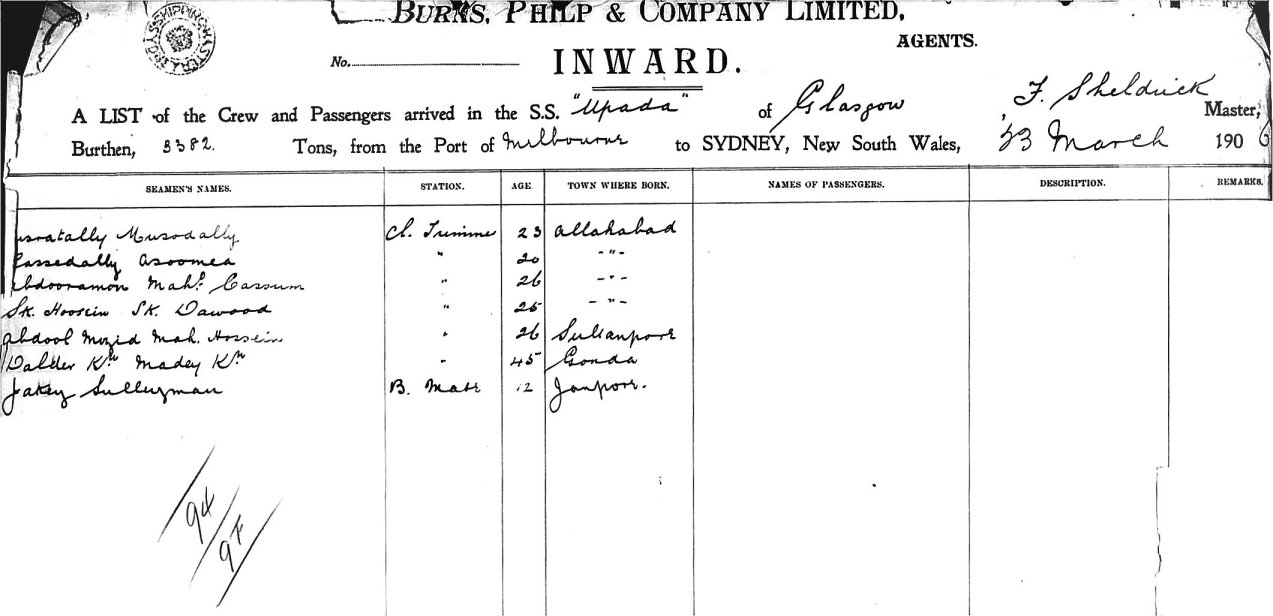 BURNS, PHILP & COMPANY LIMITED,
AGENTS.
No.
INWARD.
A LIST of the Crew and Passengers arrived in the S.S. "Upada" of Glasgow F. Sheldrick Master,
Burthen, 3382. Tons, from the Port of Melbourne to SYDNEY, New South Wales, 23 March 1906
SEAMEN'S NAMES. STATION. AGE TOWN WHERE BORN. NAMES OF PASSENGERS. DESCRIPTION. REMARKS.
Musodally Cl. Trimmer 23 Allahabad
Asoomea " 20 - " -
Abdooramon Mahd. Cassum " 26 - " -
Sk. Hoosein Sk. Dawood " 25 - " -
Abdool Mozid Mah. Hossein " 26 Sultanpore
Kn Madey Kn " 45 Gonda
Jakey B. Mate 12 Janpore.
94
97